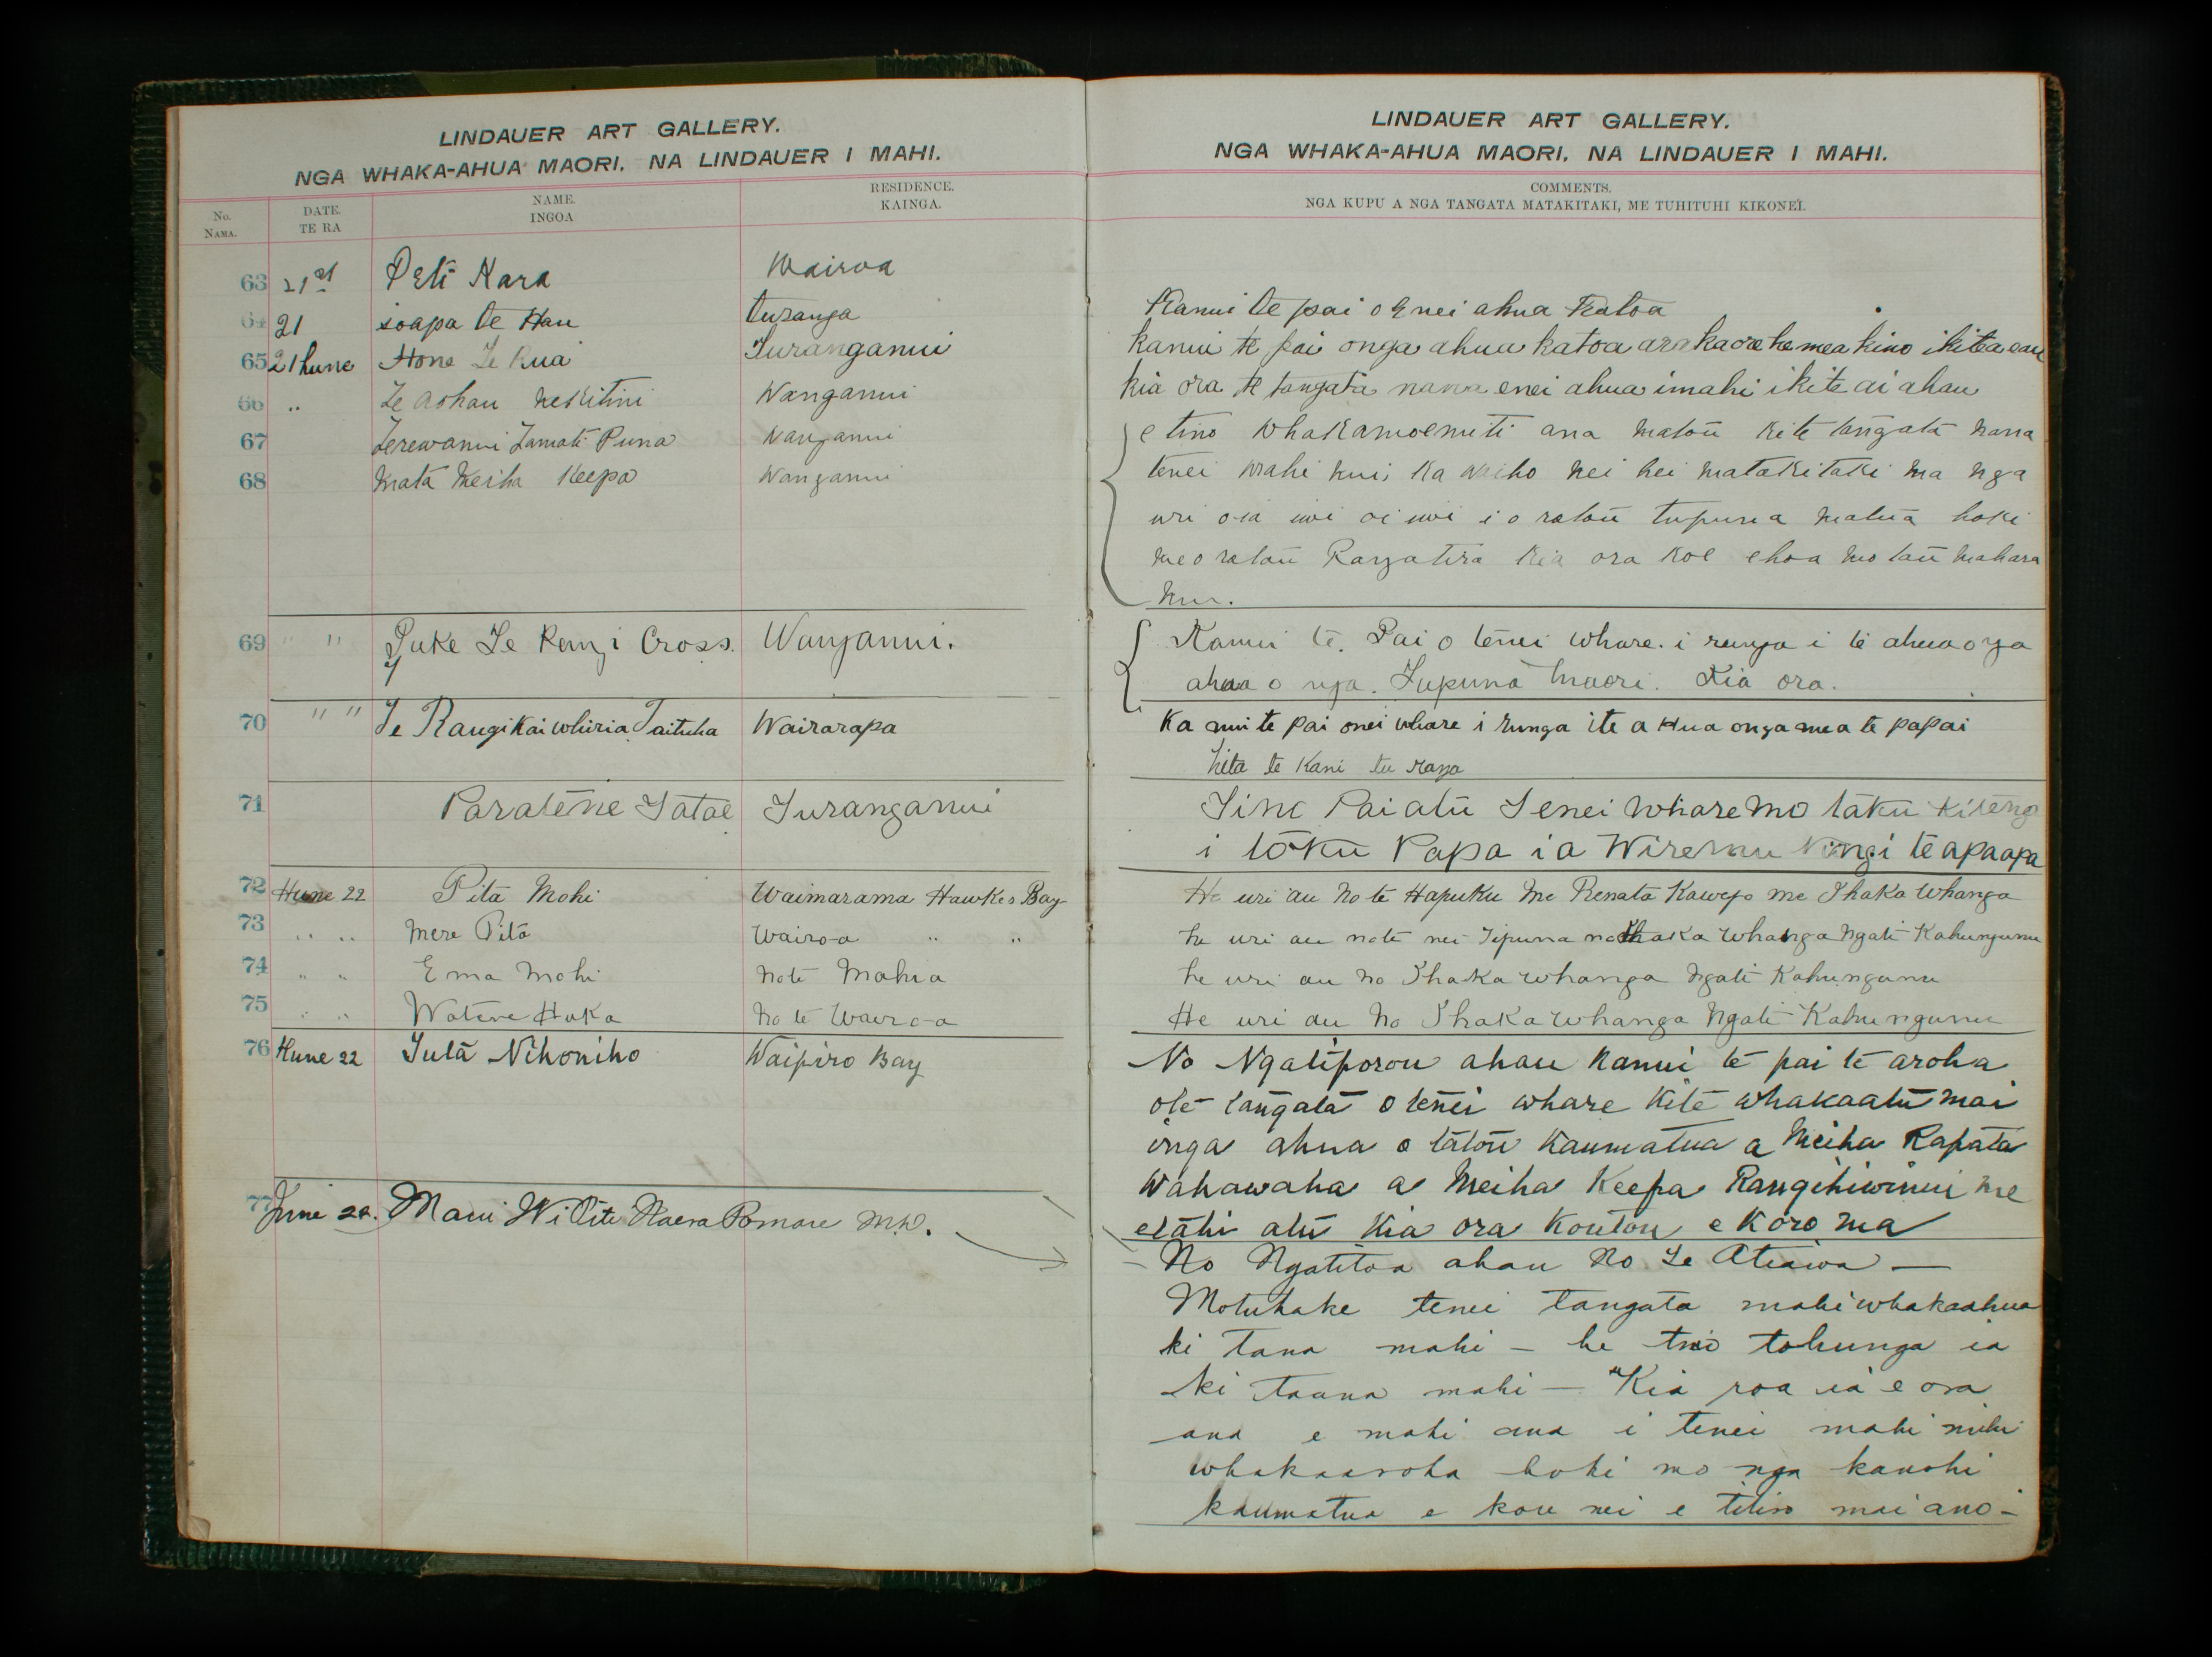 LINDAUER ART GALLERY.
NGA WHAKA-AHUA MAORI, NA LINDAUER I MAHI.
No. DATE. NAME. RESIDENCE.
NAMA. TE RA INGOA KAINGA.
63 21st Peti Nara Wairoa
64 21 ioapa te Hau turanga
65 21 hune Hone Te Rua Turanganui
66 " Te aohau Wanganui
67 Terewanui Tamati Puna Wanganui
68 Mata Meiha Keepa Wanganui
69 " " Te Rangi Cross. Wanganui.
70 " " Te Rangi Kaiwhiria Taituha Wairarapa
71 Paratene Tatae Turanganui
72 Hune 22 Pita Mohi Waimarama Hawkes Bay
73 " " Mere Pita Wairoa " "
74 " " Ema Mohi No te Mahia
75 " " Watene Huka No te Wairoa
76 Hune 22 Tuta Nihoniho Waipiro Bay
77 June 22. Maui Wi Pite Naera Pomare M.D.
LINDAUER ART GALLERY.
NGA WHAKA-AHUA MAORI, NA LINDAUER I MAHI.
COMMENTS.
NGA KUPU A NGA TANGATA MATAKITAKI, ME TUHITUHI KIKONEI.
Kanui te pai o enei ahua Katoa
kanui te pai onga ahua katoa ara kaore he mea kino i kitea eau
kia ora te tangata nana enei ahua i mahi i kite ai ahau
e tino whakamoemiti ana matou ki te tangata nana
tenei mahi nui, ka waiho nei hei matakitaki ma nga
uri o ia iwi o ia iwi i o ratou tupuna matua hoki
me o ratou Rangatira Kia ora Koe ehoa mo tau mahara
nui.
Kanui te. Pai o tenei whare. i runga i te ahua o nga
ahua o nga. Tupuna maori. Kia ora.
Ka nui te pai onei whare i runga i te a Hua onga mea te papai
hita te Kani tu
Tino Pai atu Tenei Whare mo taku Kitenga
i toku Papa ia Wiremu Kingi te apaapa
He uri au No te Hapuku me Renata Kawepo me Ihaka Whanga
he uri au no te nei Tipuna no Ihaka Whanga Ngati Kahungunu
he uri au no Ihaka whanga Ngati Kahungunu
He uri au No Ihaka whanga Ngati Kahungunu
No Ngatiporou ahau Kanui te pai te aroha
ote tangata o tenei whare kite whakaatu mai
inga ahua o tatou Kaumatua a Meiha Rapata
Wahawaha a Meiha Keepa Rangihiwinui me
etahi atu Kia ora Koutou e Koro ma
No Ngatitoa ahau No Te Atiawa —
Motuhake tenei tangata mahi whakaahua
ki tana mahi — he tino tohunga ia
ki taana mahi — Kia roa ia e ora
ana e mahi ana i tenei mahi mihi
whakaaroha hoki mo nga kanohi
kaumatua e kore nei e titiro mai ano —